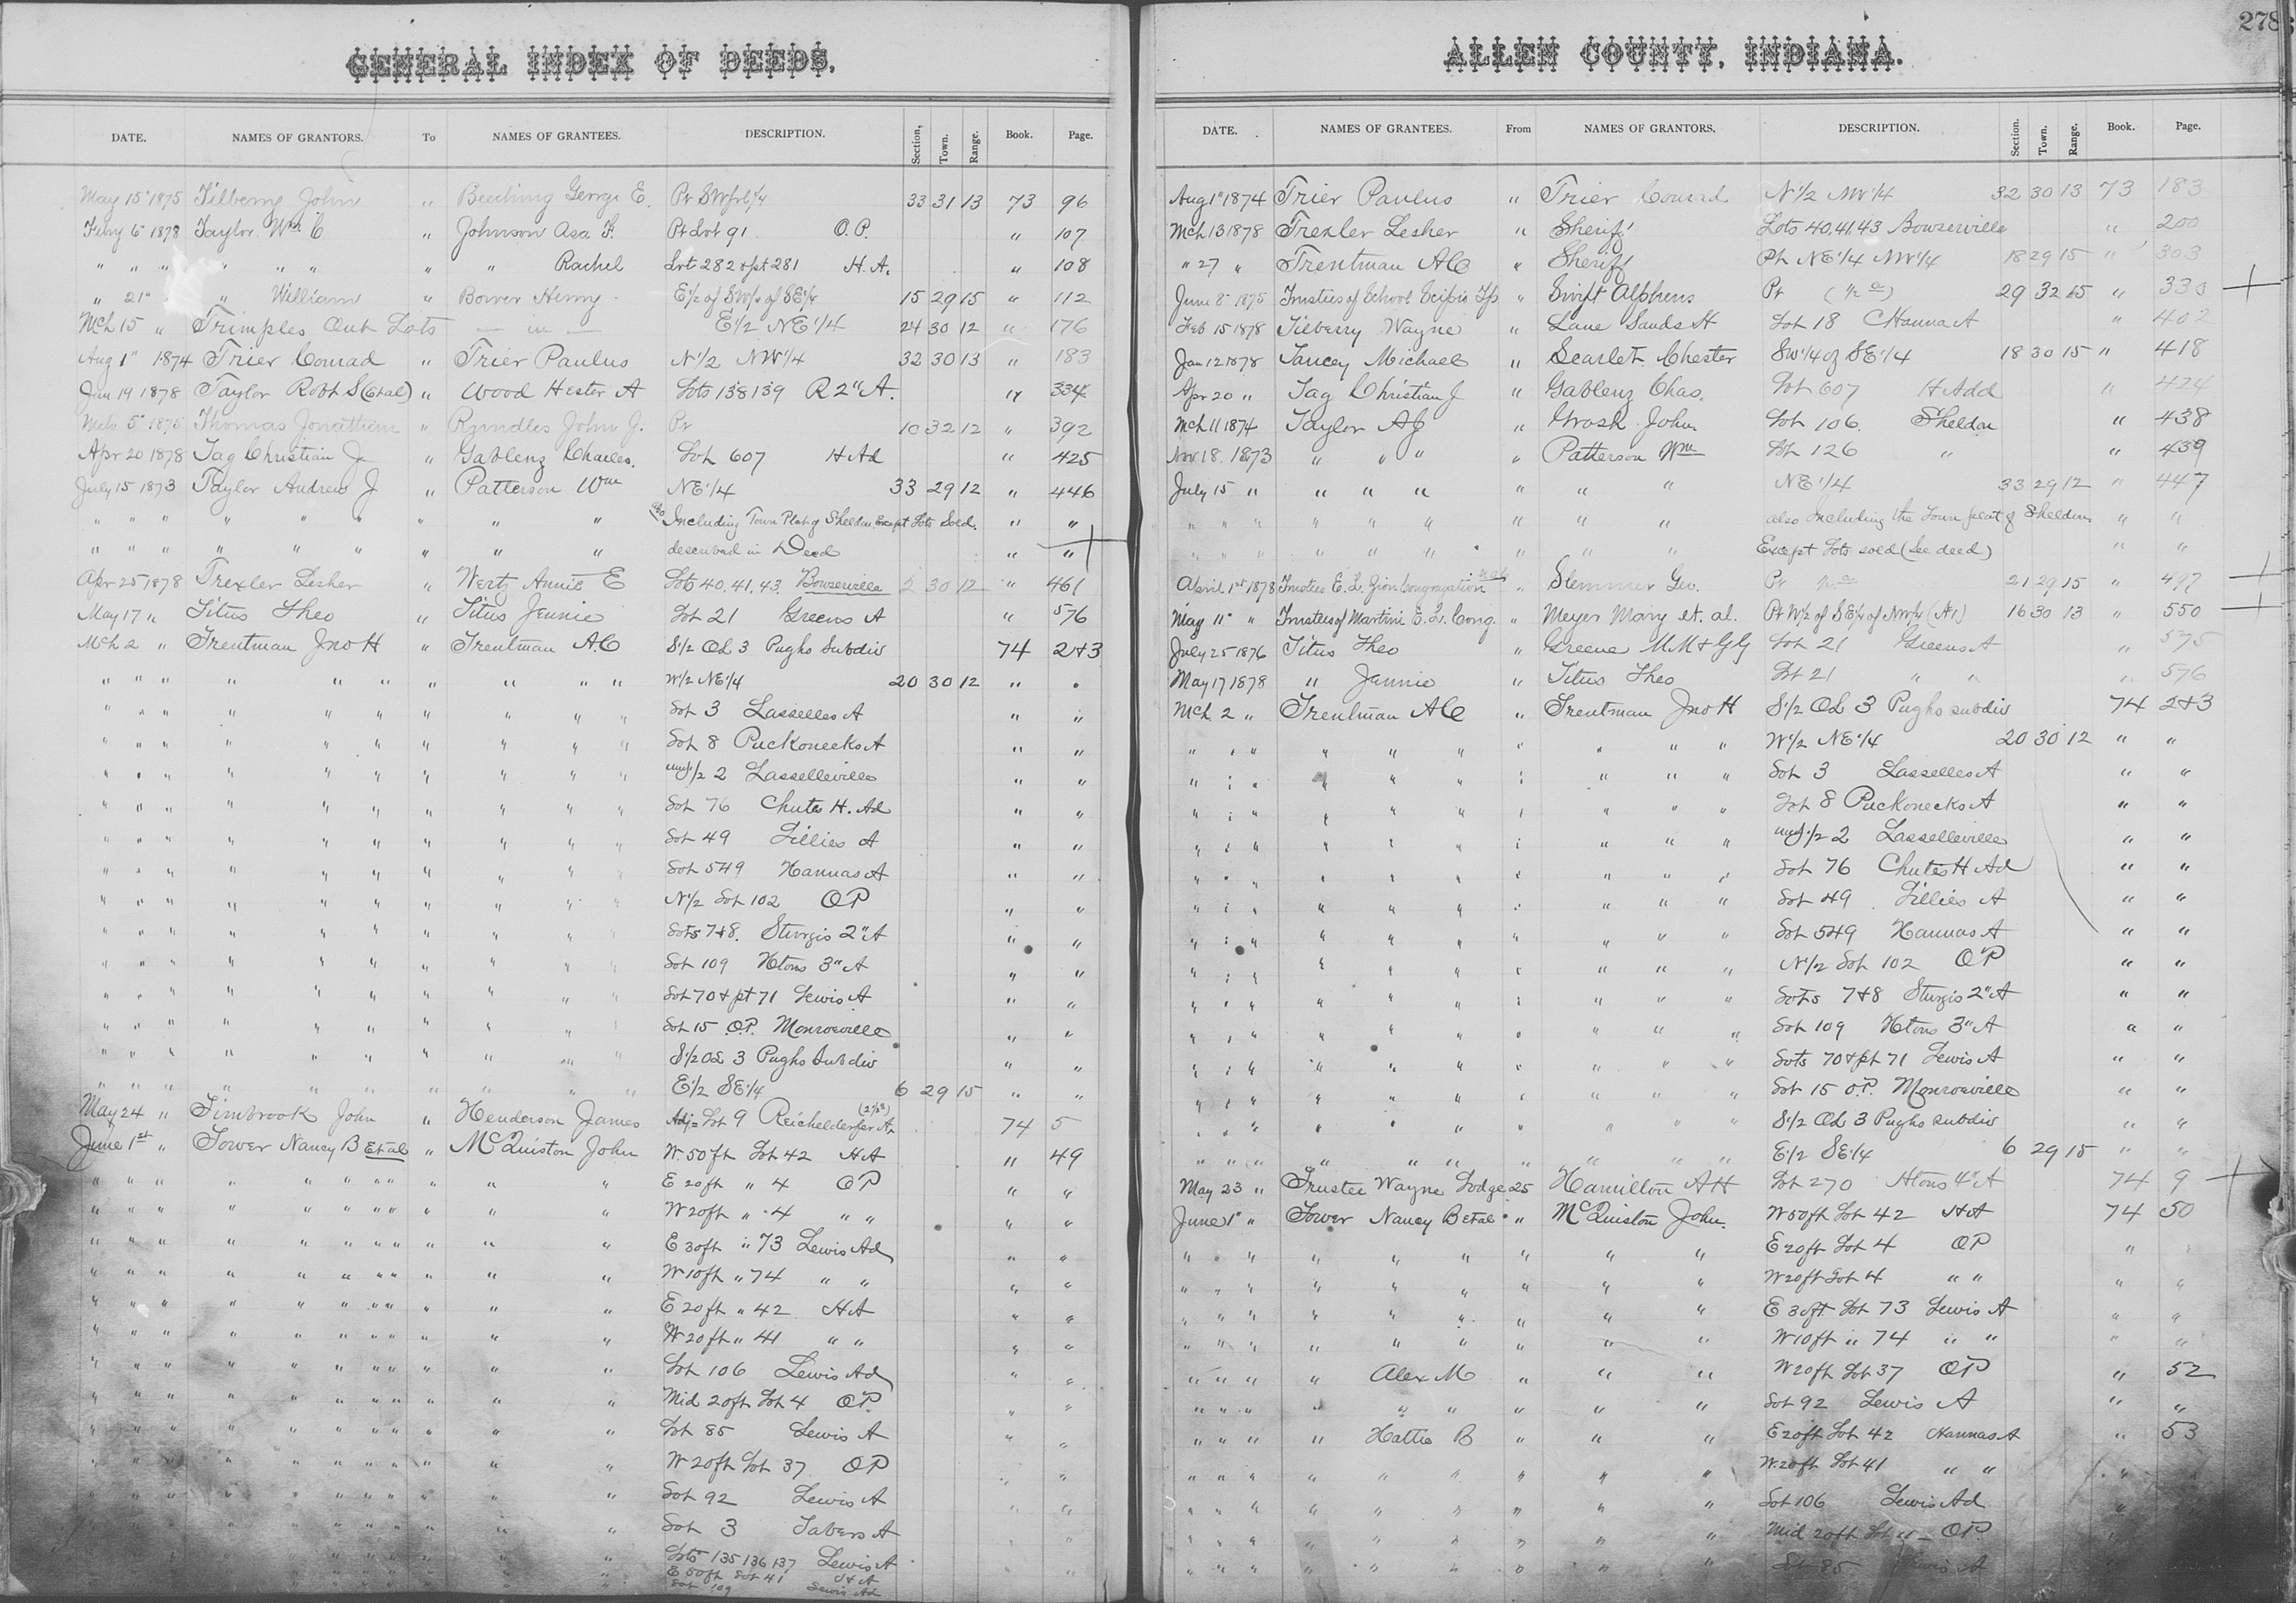 GENERAL INDEX OF DEEDS.
DATE. NAMES OF GRANTORS. To NAMES OF GRANTEES. DESCRIPTION. Section, Town. Range. Book. Page.
May 15" 1875 Tilberry John " Beeching George E. Pt SWfrl1/4 33 31 13 73 96
Febry 6" 1878 Taylor Wm C " Johnson Asa F. Pt Lot 91 O.P. " 107
" " " " " " " " Rachel Lot 282 & pt 281 H.A. " 108
" 21" " William " Bower Henry E1/2 of SW1/4 of SE1/4 15 29 15 " 112
Mch 15 " Trimples Out Lots — in — E1/2 NE1/4 24 30 12 " 176
Aug 1" 1874 Trier Conrad " Trier Paulus N1/2 NW1/4 32 30 13 " 183
Jan 19 1878 Taylor Robt S (Etal) " Wood Hester A Lots 138 139 R 2" A. " 334
Mch 5" 1875 Thomas Jonathan " Rundles John J. Pt 10 32 12 " 392
Apr 20 1878 Tag Christian J " Gablenz Charles. Lot 607 H Ad " 425
July 15 1873 Taylor Andrew J " Patterson Wm NE1/4 33 29 12 " 446
" " " " " " " " " also Including Town Plat of Sheldon Except Lots Sold. " "
" " " " " " " " " described in Deed " "
Apr 25 1878 Trexler Lesher " Wertz Annie E Lots 40. 41. 43. Bowserville 5 30 12 " 461
May 17 " Titus Theo " Titus Jennie Lot 21 Greens A " 576
Mch 2 " Trentman Jno H " Trentman A.C S1/2 OL 3 Pughs Subdiv 74 2&3
" " " " " " " " " " W1/2 NE1/4 20 30 12 " "
" " " " " " " " " " Lot 3 Lasselles A " "
" " " " " " " " " " Lot 8 Puckoneeks A " "
" " " " " " " " " " und 1/2 2 Lasselleville " "
" " " " " " " " " " Lot 76 Chutes H. Ad " "
" " " " " " " " " " Lot 49 Lillies A " "
" " " " " " " " " " Lot 549 Hannas A " "
" " " " " " " " " " N1/2 Lot 102 OP " "
" " " " " " " " " " Lots 7&8. Sturgis 2" A " "
" " " " " " " " " " Lot 109 Htons 3" A " "
" " " " " " " " " " Lot 70 & pt 71 Lewis A " "
" " " " " " " " " " Lot 15 O.P. Monroeville " "
" " " " " " " " " " S1/2 OL 3 Pughs Subdiv " "
" " " " " " " " " " E1/2 SE1/4 6 29 15 " "
May 24 " Timbrook John " Henderson James Adj= Lot 9 Reichelderfer A 74 5
June 1st " Tower Nancy B Et al " McQuiston John W. 50 ft Lot 42 HA " 49
" " " " " " " " " " E 20 ft " 4 OP " "
" " " " " " " " " " W 20 ft " 4 " " " "
" " " " " " " " " " E 30 ft " 73 Lewis Ad " "
" " " " " " " " " " W 10 ft " 74 " " " "
" " " " " " " " " " E 20 ft " 42 HA " "
" " " " " " " " " " W 20 ft " 41 " " " "
" " " " " " " " " " Lot 106 Lewis Ad " "
" " " " " " " " " " Mid 20 ft Lot 4 OP. " "
" " " " " " " " " " Lot 85 Lewis A " "
" " " " " " " " " " W 20 ft Lot 37 OP " "
" " " " " " " " " " Lot 92 Lewis A " "
" " " " " " " " " " Lot 3 Tabers A " "
" " " " " " " " " " Lots 135 136 137 Lewis A
E 50 ft Lot 41 H A
Lot 109 Lewis Ad
278
ALLEN COUNTY, INDIANA.
DATE. NAMES OF GRANTEES. From NAMES OF GRANTORS. DESCRIPTION. Section. Town. Range. Book. Page.
Aug 1" 1874 Trier Paulus " Trier Conrad N1/2 NW1/4 32 30 13 73 183
Mch 13 1878 Trexler Lesher " Sheriff Lots 40.41.43 Bowserville " 200
" 27 " Trentman A C " Sheriff Pt NE1/4 NW1/4 18 29 15 " 303
June 8" 1875 Trustees of School Scipio Tp " Swift Alpheus Pt (1/2 a) 29 32 15 " 330
Feb 15 1878 Tilberry Wayne " Lane Sands H Lot 18 C Hanna A " 402
Jan 12 1878 Tancey Michael " Scarlet Chester SW1/4 of SE1/4 18 30 15 " 418
Apr 20 " Tag Christian J " Gablenz Chas. Lot 607 H Add " 424
Mch 11 1874 Taylor A J " Grosh John Lot 106. Sheldon " 438
Nov 18. 1873 " " " " Patterson Wm Lot 126 " " 439
July 15 " " " " " " " NE1/4 33 29 12 " 447
" " " " " " " " " also Including the Town plat of Sheldon " "
" " " " " " " " " Except Lots sold (See deed) " "
April 1st 1878 Trustees E. L. Zion Congregation " Stemmer Geo. Pt 21 29 15 " 497
May 11" " Trustees of Martini E. L. Cong. " Meyer Mary et. al. Pt W1/2 of SE1/4 of NW1/4 (A1) 16 30 13 " 550
July 25 1876 Titus Theo " Greene M.M & G G Lot 21 Greens A " 575
May 17 1878 " Jennie " Titus Theo Lot 21 " " " 576
Mch 2 " Trentman A C " Trentman Jno H S1/2 OL 3 Pughs subdiv 74 2&3
" " " " " " " " " " W1/2 NE1/4 20 30 12 " "
" " " " " " " " " " Lot 3 Lasselles A " "
" " " " " " " " " " Lot 8 Puckoneeks A " "
" " " " " " " " " " und 1/2 2 Lasselleville " "
" " " " " " " " " " Lot 76 Chutes H Ad " "
" " " " " " " " " " Lot 49 Lillies A " "
" " " " " " " " " " Lot 549 Hannas A " "
" " " " " " " " " " N1/2 Lot 102 OP " "
" " " " " " " " " " Lots 7&8 Sturgis 2" A " "
" " " " " " " " " " Lot 109 Htons 3" A " "
" " " " " " " " " " Lots 70 & pt 71 Lewis A " "
" " " " " " " " " " Lot 15 O.P. Monroeville " "
" " " " " " " " " " S1/2 OL 3 Pughs subdiv " "
" " " " " " " " " " E1/2 SE1/4 6 29 15 " "
May 23 " Trustee Wayne Lodge 25 Hamilton A H Lot 270 Htons 4" A 74 9
June 1" " Tower Nancy B et al " McQuiston John. W 50 ft Lot 42 HA 74 50
" " " " " " " " " E 20 ft Lot 4 OP "
" " " " " " " " " W 20 ft Lot 4 " " " "
" " " " " " " " " E 30 ft Lot 73 Lewis A " "
" " " " " " " " " W 10 ft " 74 " " " "
" " " " Alex M " " " W 20 ft Lot 37 OP " 52
" " " " " " " " " Lot 92 Lewis A " "
" " " " Hattie B " " " E 20 ft Lot 42 Hannas A " 53
" " " " " " " " " W. 20 ft Lot 41 " " " "
" " " " " " " " " Lot 106 Lewis Ad "
" " " " " " " " " Mid 20 ft Lot 4 OP
" " " " " " " " " Lot 85 Lewis A